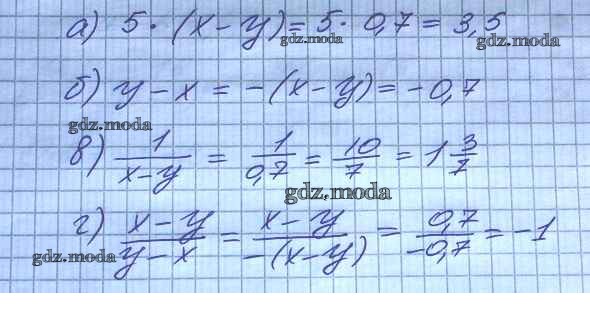 а) 5 · (x - y) = 5 · 0,7 = 3,5
gdz.moda gdz.moda
б) y - x = -(x - y) = -0,7
gdz.moda
в) 1/(x - y) = 1/0,7 = 10/7 = 1 3/7
gdz.moda
г) (x - y)/(y - x) = (x - y)/(-(x - y)) = 0,7/(-0,7) = -1
gdz.moda